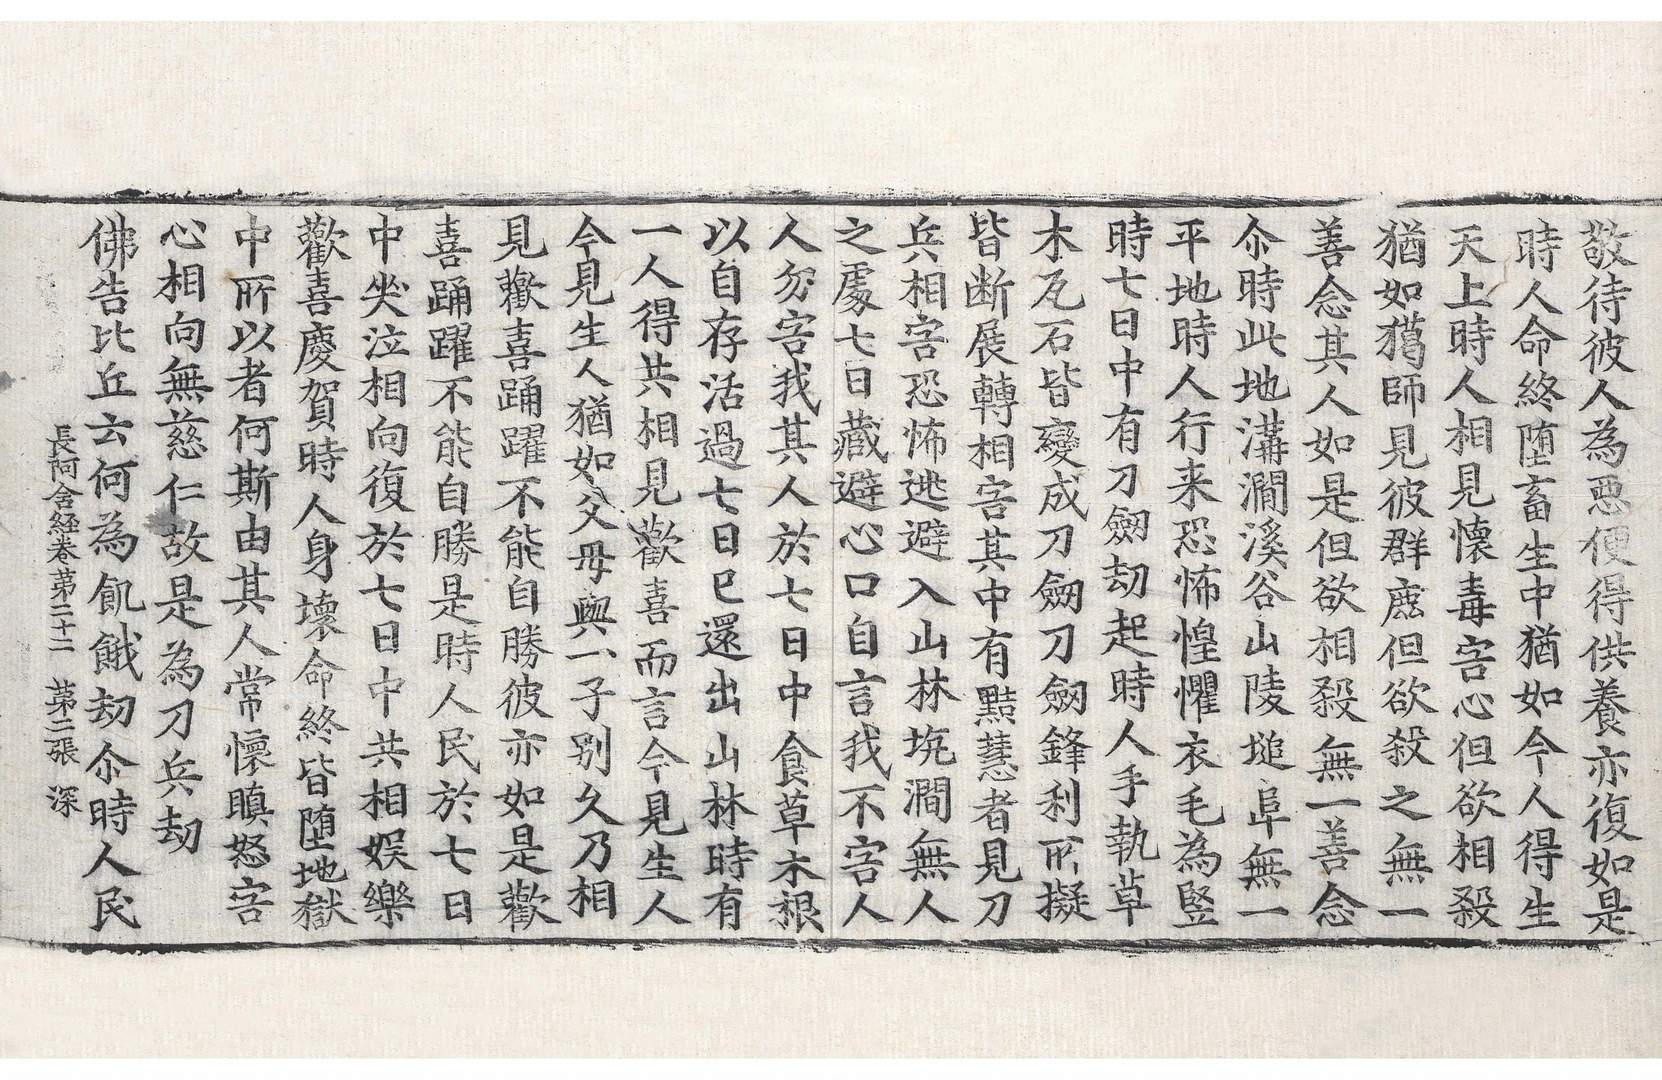 敬待彼人為惡便得供養亦復如是
時人命終墮畜生中猶如今人得生
天上時人相見懷毒害心但欲相殺
猶如獦師見彼群鹿但欲殺之無一
善念其人如是但欲相殺無一善念
尒時此地溝澗溪谷山陵塠阜無一
平地時人行来恐怖惶懼衣毛為竪
時七日中有刀劒劫起時人手執草
木瓦石皆變成刀劒刀劒鋒利所擬
皆断展轉相害其中有黠慧者見刀
兵相害恐怖逃避入山林坑澗無人
之處七日藏避心口自言我不害人
人勿害我其人於七日中食草木根
以自存活過七日已還出山林時有
一人得共相見歡喜而言今見生人
今見生人猶如父母與一子別久乃相
見歡喜踊躍不能自勝彼亦如是歡
喜踊躍不能自勝是時人民於七日
中哭泣相向復於七日中共相娛樂
歡喜慶賀時人身壞命終皆墮地獄
中所以者何斯由其人常懷瞋怒害
心相向無慈仁故是為刀兵劫
佛告比丘云何為飢餓劫尒時人民
長阿含経卷第二十二　第二張　深